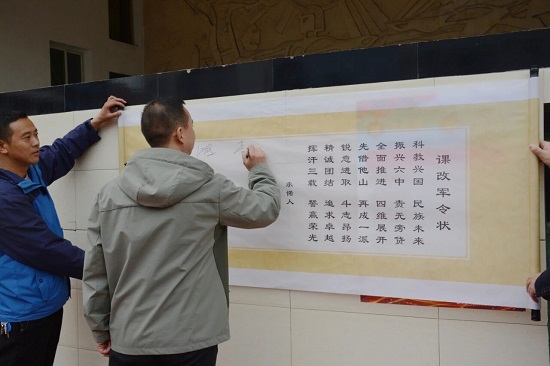 课改军令状
科教兴国 民族未来
振兴六中 责无旁贷
全面推进 四维展开
先借他山 再成一派
锐意进取 斗志昂扬
精诚团结 追求卓越
挥汗三载 誓赢荣光